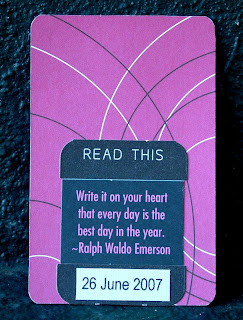 READ THIS
Write it on your heart
that every day is the
best day in the year.
~Ralph Waldo Emerson
26 June 2007